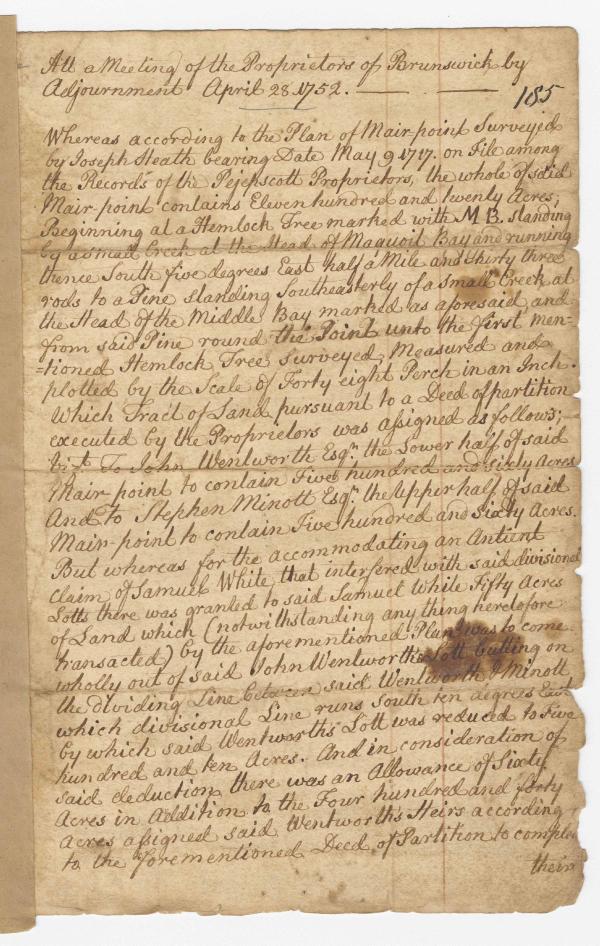 Att a Meeting of the Proprietors of Brunswick by
Adjournment April 28 1752. — — —
185
Whereas according to the Plan of Mair point Surveyed
by Joseph Heath bearing Date May 9 1717. on File among
the Records of the Pejepscott Proprietors, the whole of said
Mair-point contains Eleven hundred and twenty Acres;
Beginning at a Hemlock Tree marked with M B. standing
by a small Creek at the Head of Maquoit Bay and running
thence South five degrees East half a Mile and thirty three
rods to a Pine standing Southeasterly of a small Creek at
the Head of the Middle Bay marked as aforesaid and
from said Pine round the Point unto the first men=
=tioned Hemlock Tree surveyed, Measured and
plotted by the Scale of Forty eight Perch in an Inch.
Which Tract of Land pursuant to a Deed of partition
executed by the Proprietors was assigned as follows;
vizt. To John Wentworth Esqr. the Lower half of said
Mair-point to contain Five hundred and sixty Acres
And to Stephen Minott Esqr. the Upper half of said
Mair-point to contain Five hundred and Sixty Acres.
But whereas for the accommodating an Antient
claim of Samuel White that interfered with said divisional
Lotts there was granted to said Samuel White Fifty Acres
of Land which (notwithstanding any thing heretofore
transacted) by the aforementioned Plan was to come
wholly out of said John Wentworth's Lott butting on
the dividing Line between said Wentworth & Minott
which divisional Line runs South ten degrees East
by which said Wentworths Lott was reduced to Five
hundred and ten Acres. And in consideration of
said deduction there was an Allowance of Sixty
Acres in Addition to the Four hundred and forty
Acres assigned said Wentworth's Heirs according
to the forementioned Deed of Partition to compleat
their